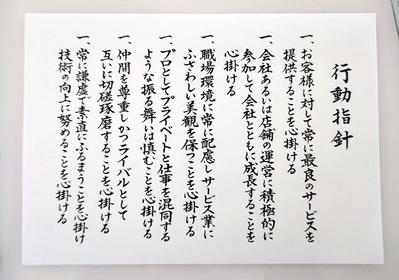 行動指針
一、お客様に対して常に最良のサービスを
提供することを心掛ける
一、会社あるいは店舗の運営に積極的に
参加して、会社とともに成長することを
心掛ける
一、職場環境に常に配慮しサービス業に
ふさわしい美観を保つことを心掛ける
一、プロとしてプライベートと仕事を混同する
ような振る舞いは慎むことを心掛ける
一、仲間を尊重しかつライバルとして
互いに切磋琢磨することを心掛ける
一、常に謙虚で素直にふるまうことを心掛け
技術の向上に努めることを心掛ける